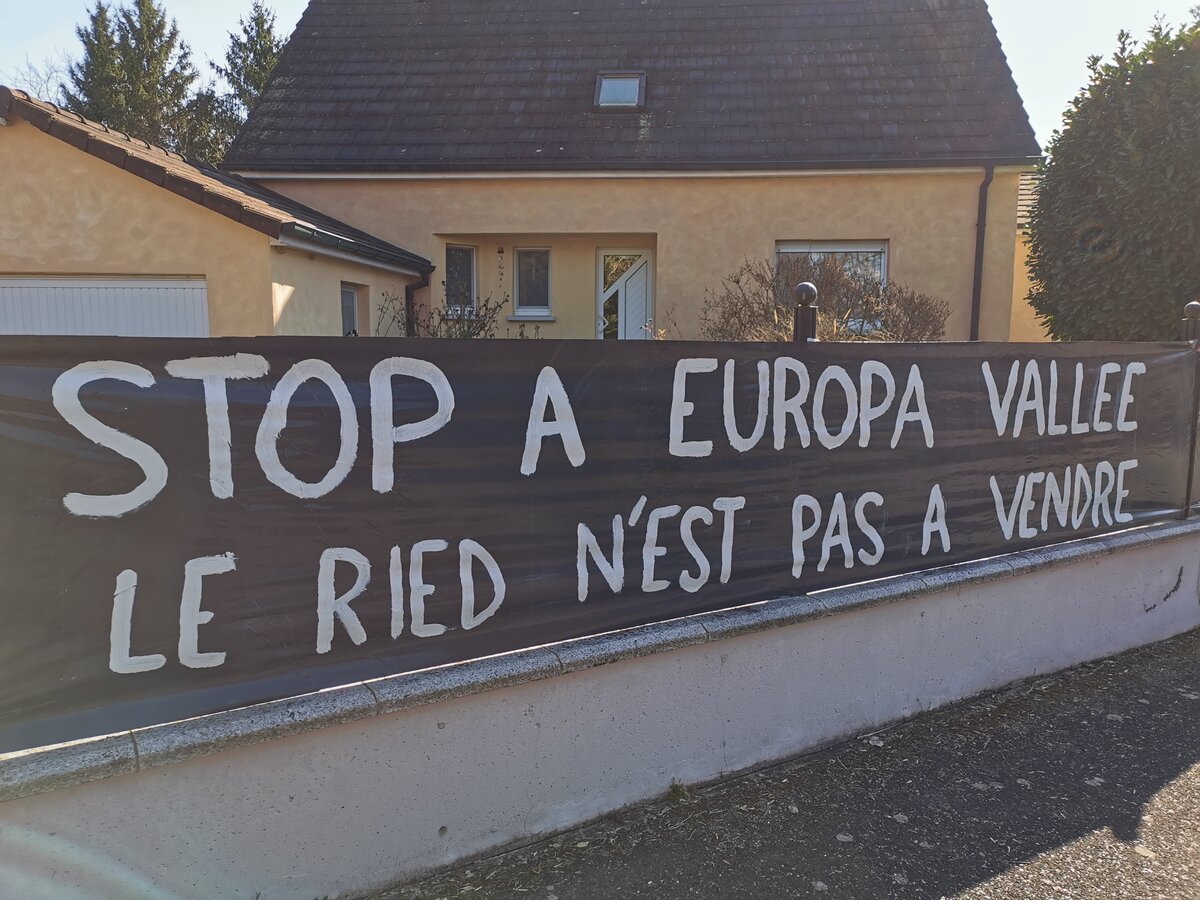 STOP A EUROPA VALLEE
LE RIED N'EST PAS A VENDRE